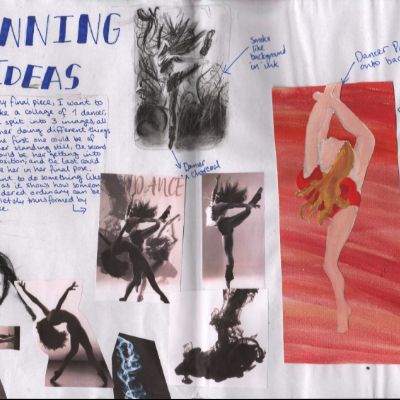 NNING
IDEAS
y final piece, I want to
e a collage of 1 dancer,
split into 3 images all
her doing different things
one first one could be of
er standing still, the second
ould be her getting into
osition, and the last could
e her in her final pose.
ant to do something like
as it shows how someone
dered ordinary can be
letely transformed by
ce.
Smoke
like
background
in ink
Dancer
n charcoal
DANCE
Dancer Pa
onto bac